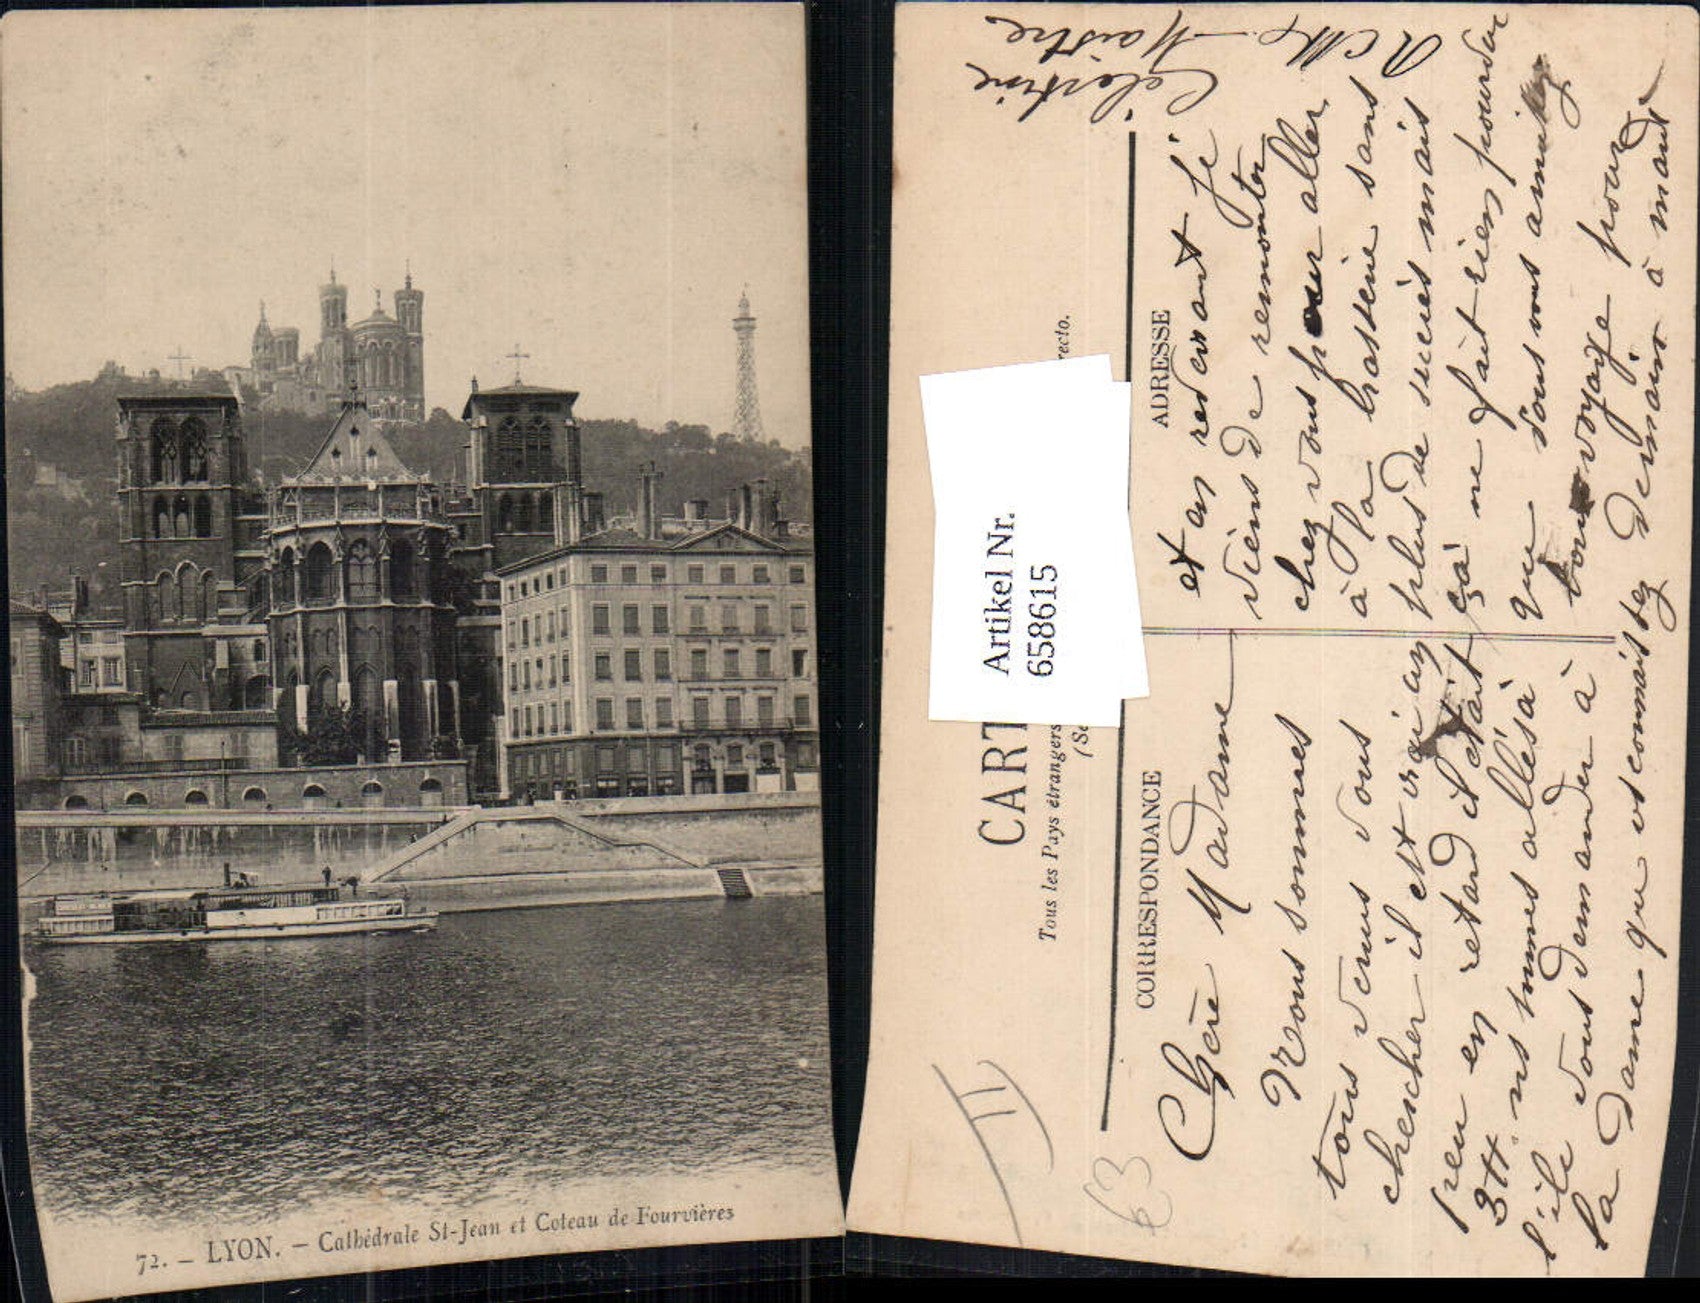 72. – LYON. – Cathédrale St-Jean et Coteau de Fourvières
CART
Tous les Pays étrangers
recto.
(Se
Artikel Nr.
658615
CORRESPONDANCE
ADRESSE
Chère Madame
Nous sommes
tous venus vous
chercher il est vrai un
peu en retard il était
3H. ns sommes allés à
l'île vous demander à
la dame que vs connaissez
et en revenant je
viens de remonter
chez vous pour aller
à la brasserie sans
plus de succès mais
ça ne fait rien pourvu
que vous vous amusiez
bon voyage pour
demain à mardi
Celestine
Maistre
63